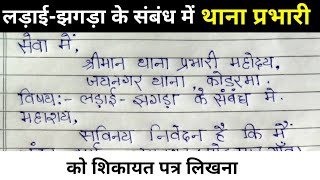 लड़ाई-झगड़ा के संबंध में थाना प्रभारी
सेवा में,
श्रीमान थाना प्रभारी महोदय,
जयनगर थाना, कोडरमा.
विषय:- लड़ाई- झगड़ा के संबंध में.
महाशय,
सविनय निवेदन है कि मैं
को शिकायत पत्र लिखना